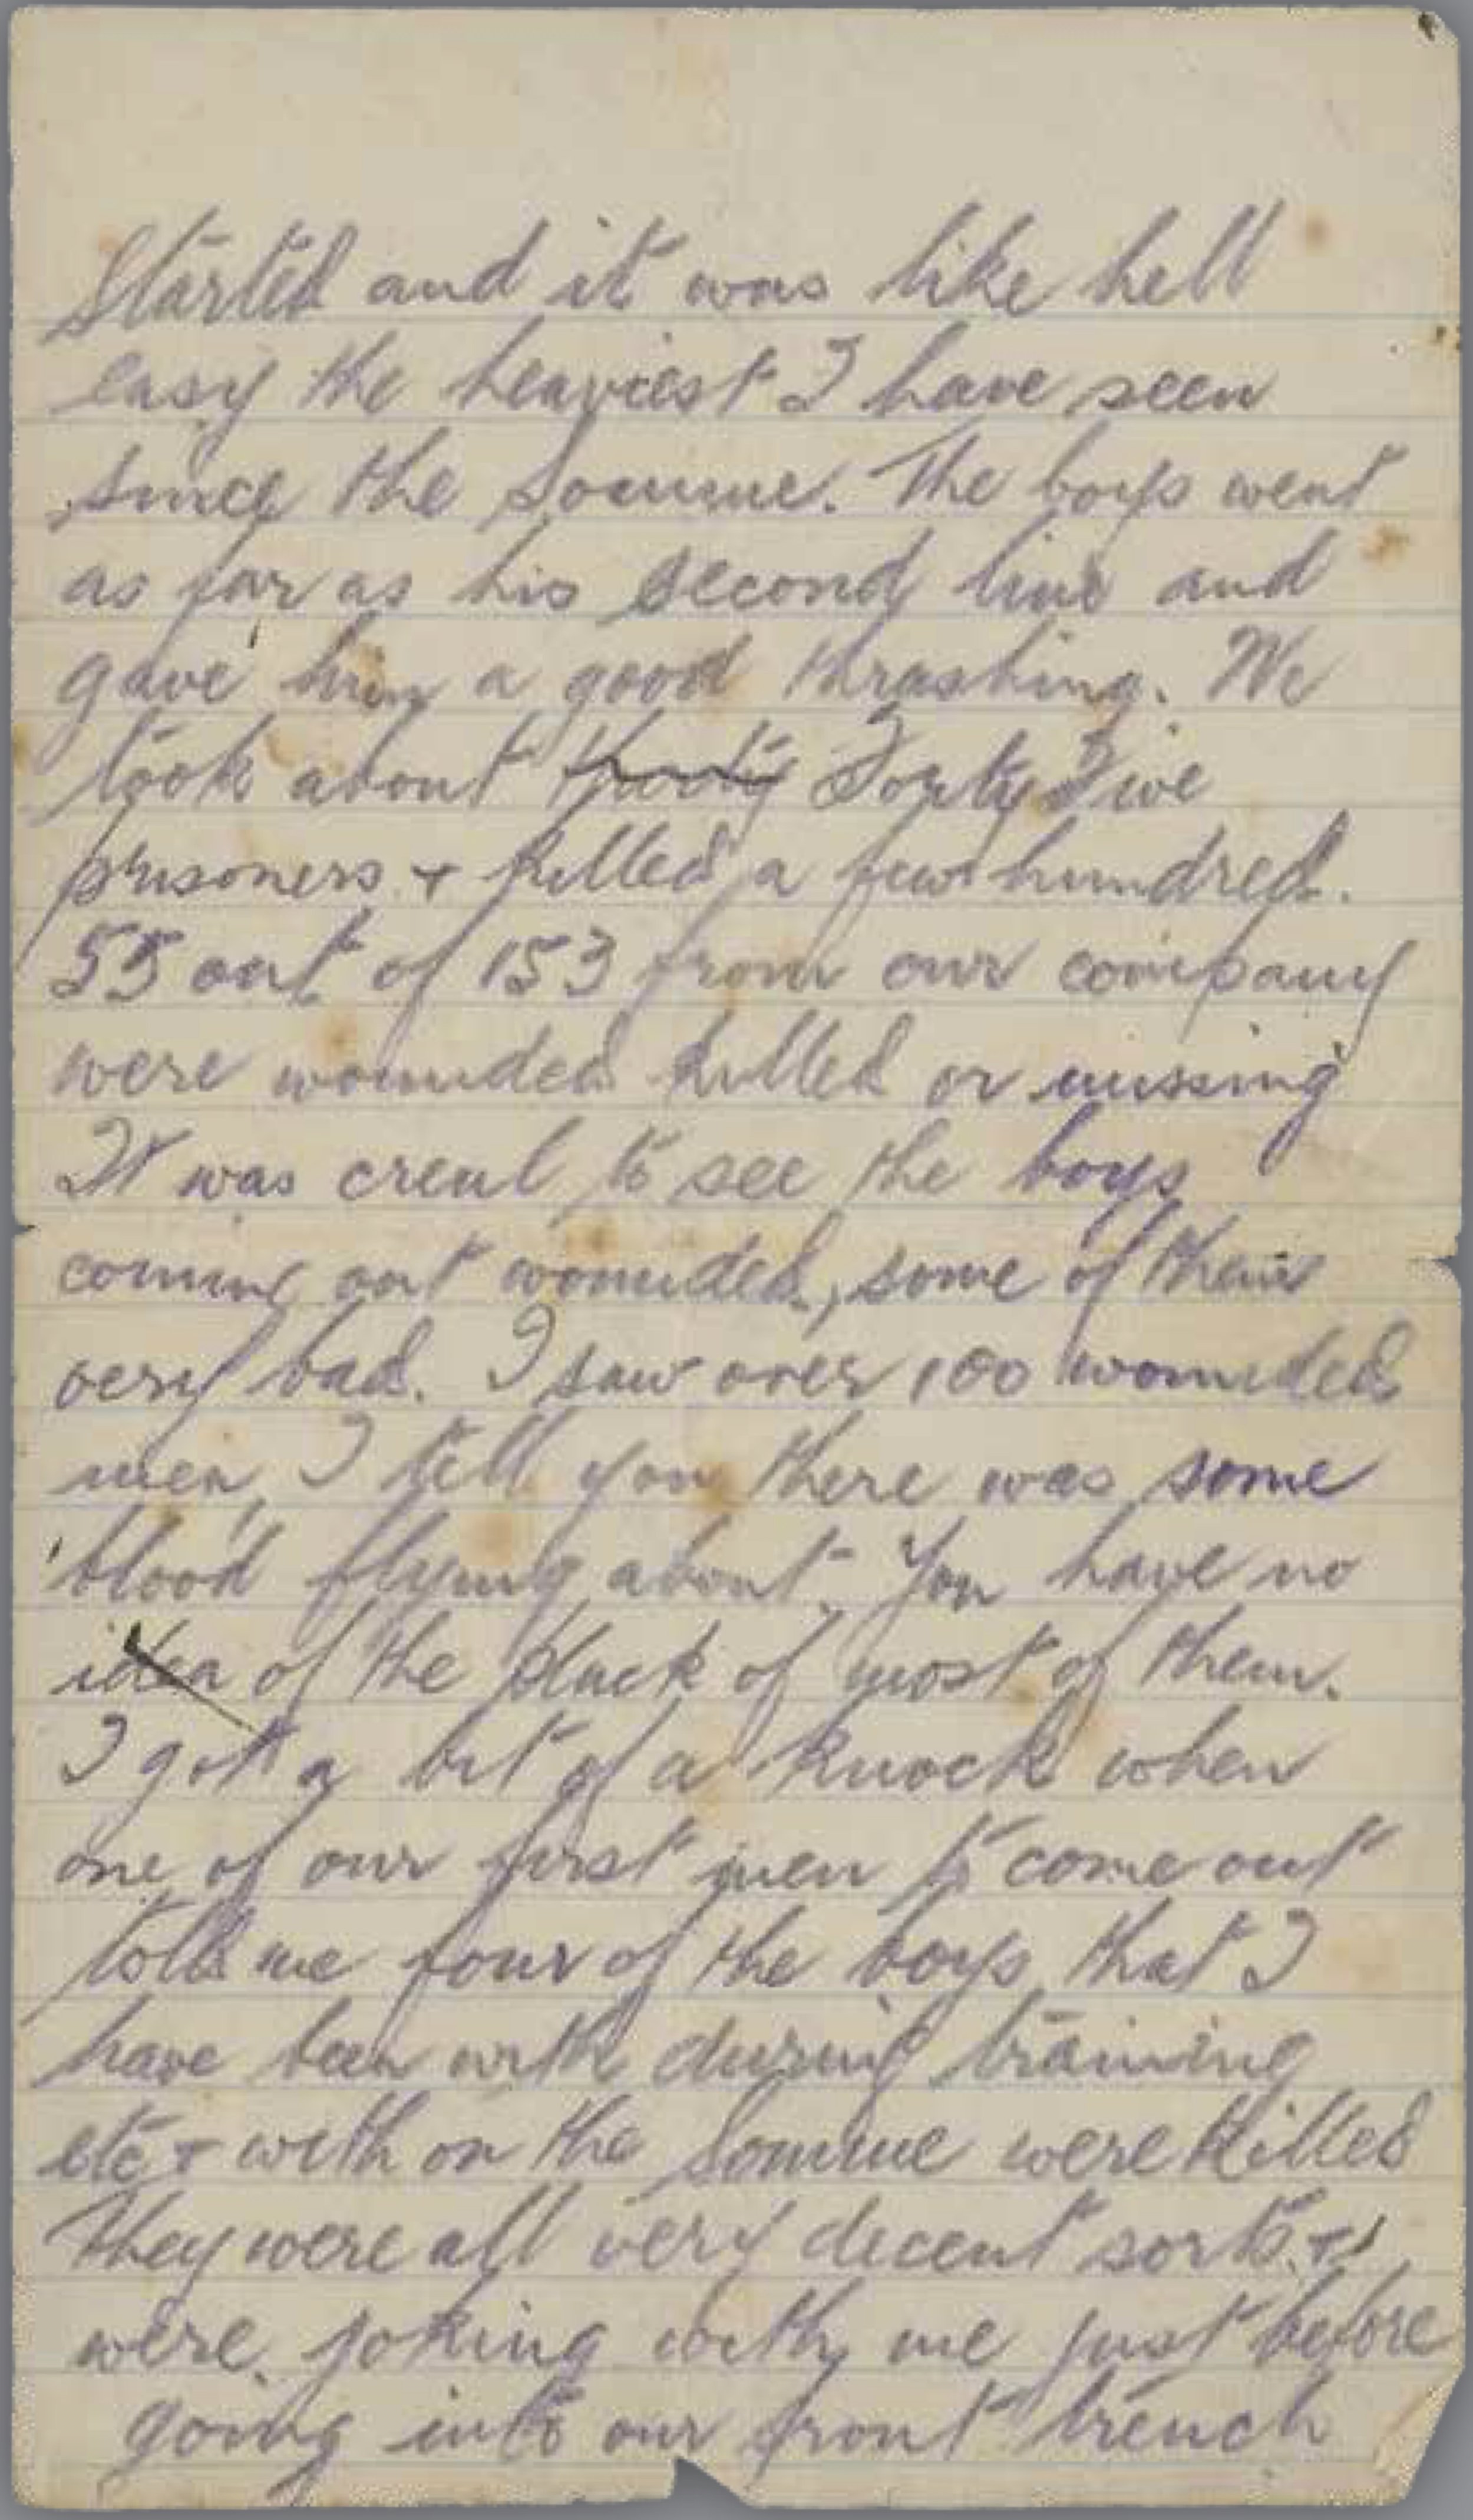 Started and it was like hell
easy the heaviest I have seen
since the Somme. The boys went
as far as his second line and
gave him a good thrashing. We
took about Forty Five
prisoners + killed a few hundred.
55 out of 153 from our company
were wounded killed or missing
It was creul to see the boys
coming out wounded, some of them
very bad. I saw over 100 wounded
men, I tell you there was some
blood flying about. You have no
idea of the pluck of most of them.
I got a bit of a knock when
one of our first men to come out
told me four of the boys that I
have been with during training
etc + with on the Somme were killed
They were all very decent sorts +
were joking with me just before
going into our front trench